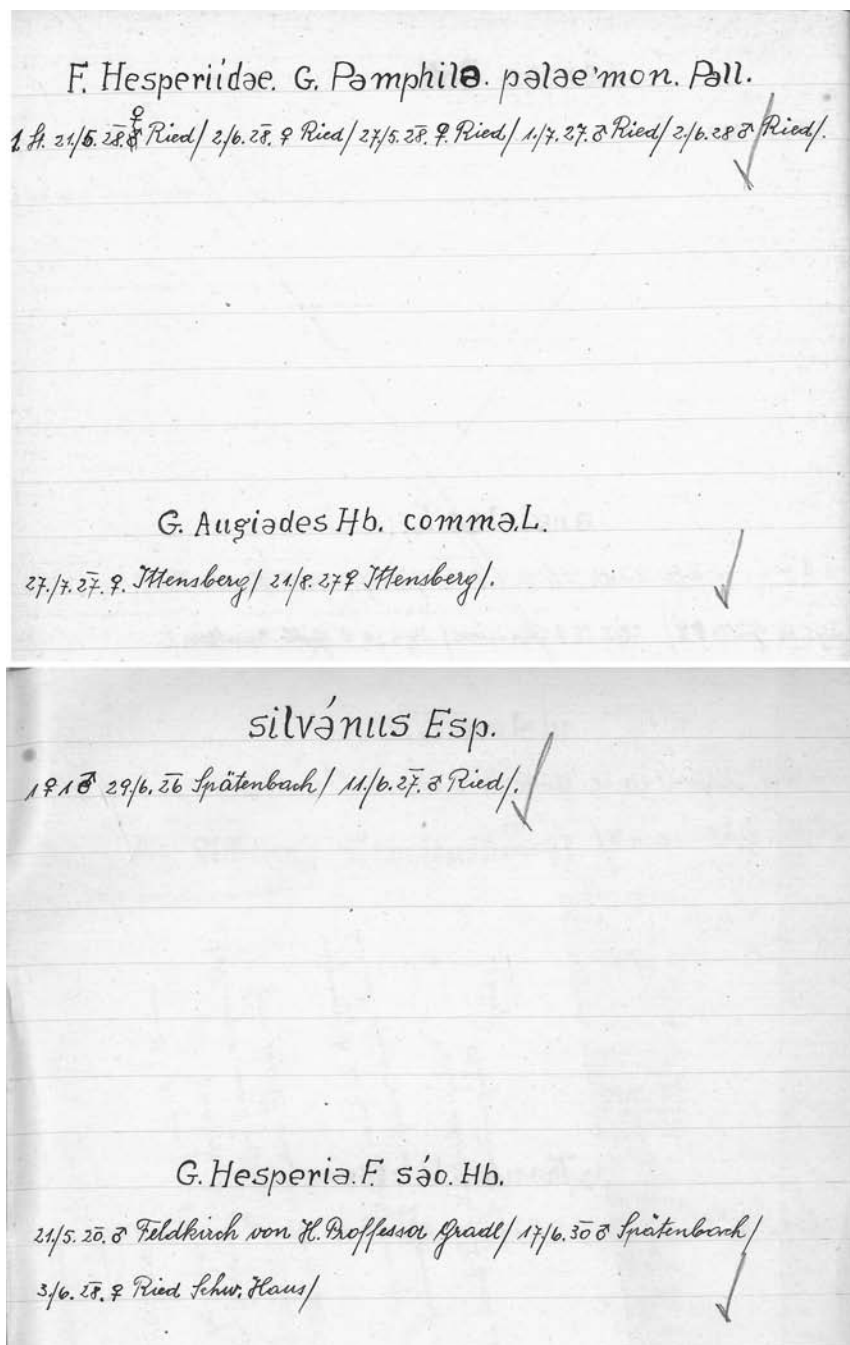 F. Hesperiídae. G. Pamphila. palae'mon. Pall.
1 St. 21/5. 28. ♀ Ried/ 2./6. 28. ♀ Ried/ 27/5. 28. ♀. Ried/ 1./7. 27. ♂ Ried/ 2./6. 28 ♂ Ried/.
G. Augiades Hb. comma. L.
27./7. 27. ♀. Ittensberg/ 21/8. 27 ♀ Ittensberg/.
silvánus Esp.
1 ♀ 1 ♂ 29./6. 26 Spätenbach/ 11./6. 27. ♂ Ried/.
G. Hesperia. F. sáo. Hb.
21/5. 20. ♂ Feldkirch von H. Proffessor Gradl/ 17/6. 30 ♂ Spätenbach/
3/6. 28. ♀ Ried Schw. Haus/